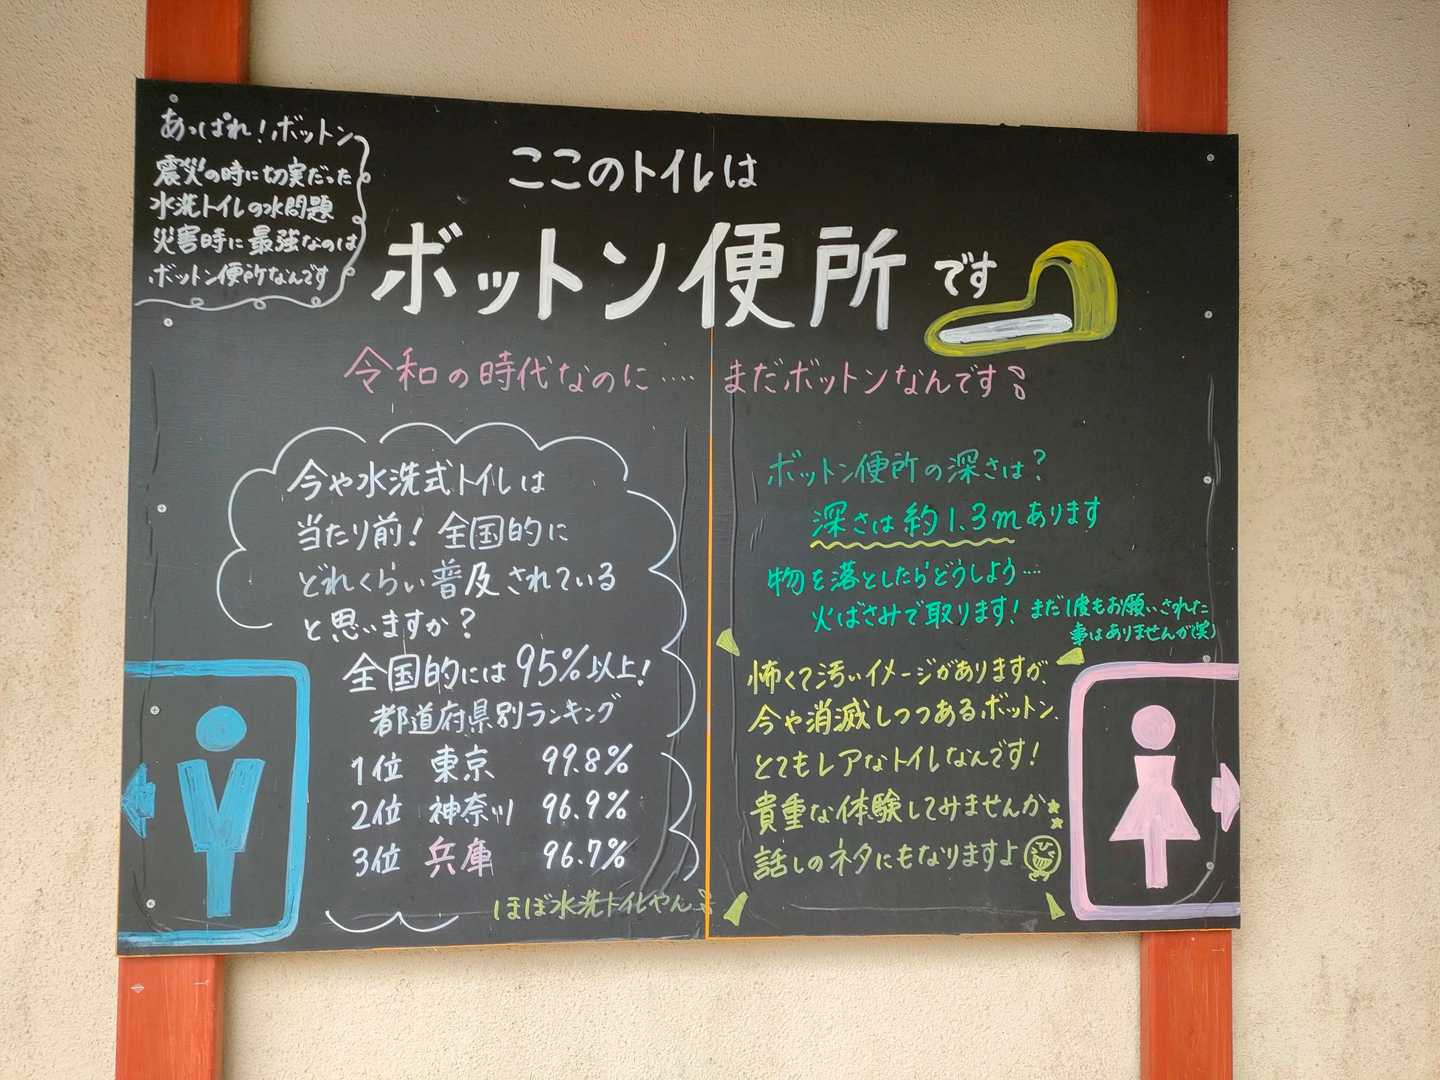 あっぱれ！ボットン
震災の時に切実だった
水洗トイレの水問題
災害時に最強なのは
ボットン便所なんです
ここのトイレは
ボットン便所です
令和の時代なのに…… まだボットンなんです
今や水洗式トイレは
当たり前！全国的に
どれくらい普及されている
と思いますか？
全国的には95%以上！
都道府県別ランキング
1位 東京 99.8%
2位 神奈川 96.9%
3位 兵庫 96.7%
ほぼ水洗トイレやん
ボットン便所の深さは？
深さは約1.3mあります
物を落としたらどうしよう…
火ばさみで取ります！まだ1度もお願いされた
事はありませんが(笑)
怖くて汚いイメージがありますが、
今や消滅しつつあるボットン、
とてもレアなトイレなんです！
貴重な体験してみませんか
話しのネタにもなりますよ